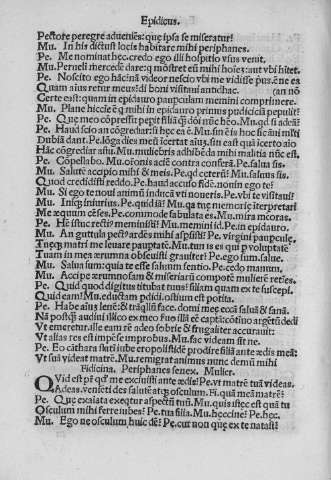 Epidicus.
Pectore peregre aduenies: que ipsa se miseratur!
Mu. In his dictust locis habitare mihi periphanes.
Pe. Me nominat hec. credo ego illi hospitio vsus venit.
Mu. Perueli mercede dare: q mostret eū mihi hoiez: aut vbi hitet.
Pe. Noscito ego hāc: nā videor nescio vbi me vidisse pus. ē ne ea
Quam aius retur meus: di boni visitaui antidhac. (an nō
Certe east: quam in epidauro paupculam memini comprimere.
Mu. Plane hiccle ē q mihi in epidauro primus pudiciciā pepulit?
Pe. Que meo cōpressu pepit filiā
Pe. Haud scio an cōgrediar: si hec ea ē. Mu.
Dubiā dant. Pe. lōga dies meū icertat aius. sin east quā icerto aio
Hāc cōgrediar astu. Mu. muliebris adhibēda mihi malitia nūc est.
Pe. Cōpellabo. Mu. ōonis aciē contra conserā. Pe. salua sis.
Mu. Salutē accipio mihi & meis. Pe. qd ceterū? Mu. saluus sis.
Quod credidisti reddo. Pe. haud accuso fidē. nouin ego te?
Mu. Si ego te noui animū inducā vti noueris. Pe. vbi te visitaui?
Mu. Inique iniurius. Pe. quid iā? Mu.
Me equum cēses. Pe. commode fabulata es. Mu. mira mcoras.
Pe. Hē istuc rectiꝰ meministi? Mu. memini id. Pe. in epidauro
Mu. An guttula pectꝰ ardēs mihi aspsisti? Pe. virgini paupcule.
Tueqz matri me leuare pauptatē. Mu. tun is es qui p voluptatē
Tuam in me erumna obseuisti grauiter? Pe. ego sum. salue.
Mu. Salua sum: quia te esse saluum sentio. Pe. cedo manum.
Mu. Accipe erumnosam & miseriarū compotē mulierē retines.
Pe. Quid quod digitus titubat tuus! filiam quam ex te suscepi.
Quid eam? Mu. eductam pdidi. ostium est potita.
Pe. Habe aiūz lenē: & trāqllū face. domi meē eccā saluā & sanā.
Nā postqz audiui illico ex meo suo illā ē captā: cōtinuo argētū dedi
Vt emeretur. ille eam rē adeo sobrie & frugaliter accurauit:
Vt alias res est impēse improbus. Mu. fac videam sit ne.
Pe. Eo caihara iusti iube cropolistidē prodire filiā ante edis meā:
Vt suā videat matrē. Mu. remigrat animus nunc demū mihi
Fidicina. Periphanes senex. Mulier.
QVid est pr qd me exciuisti ante edis? Pe. vt matrē tuā videas.
Adeas. veniēti des salutē atqz osculum. Fi. quā meā matrē?
Pe. Que exaiata exeqtur aspectū tuū. Mu. quis istec est quā tu
Osculum mihi ferre iubes? Pe. tua filia. Mu. heccine? Pe. hec.
Mu. Ego ne osculum huic dē? Pe. cur non que ex te natast?